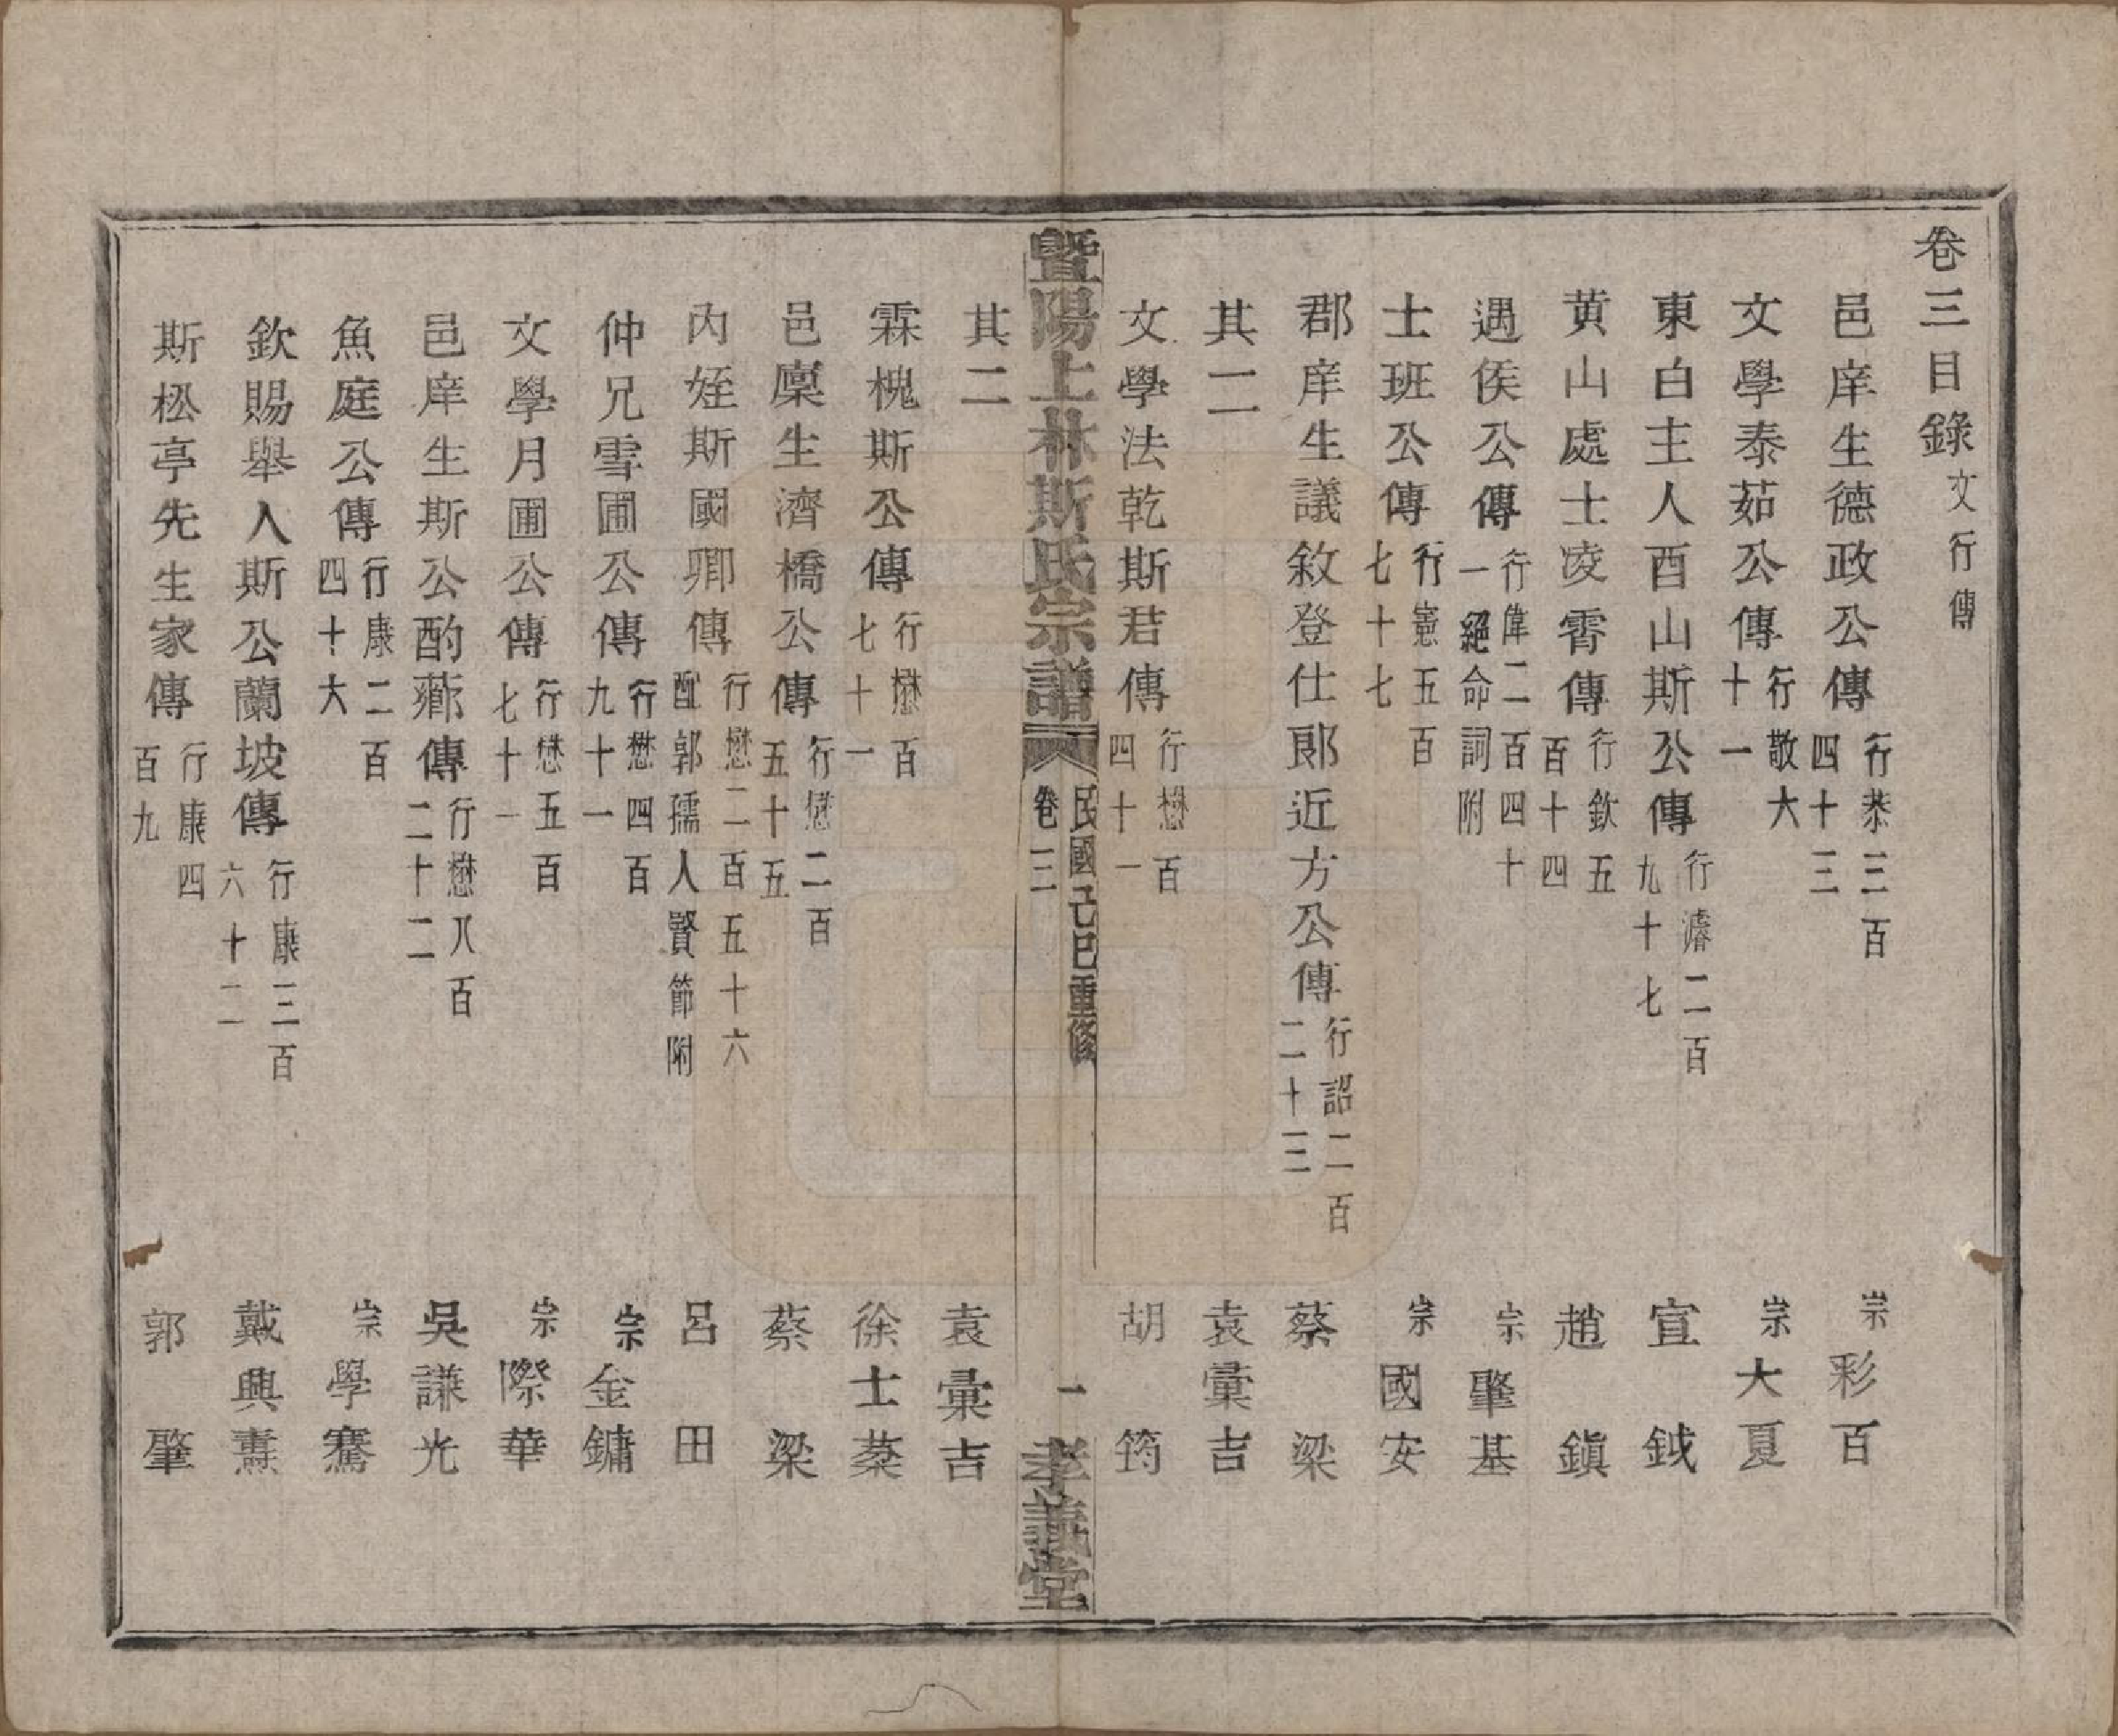 卷三目錄文行傳
邑庠生德政公傳行恭三百四十三 宗彩百
文學泰茹公傳行敬六十一 宗大夏
東白主人酉山斯公傳行濬二百九十七 宣鉞
黄山處士凌霄傳行欽五百十四 趙鎭
遇侯公傳行偉二百四十一絕命詞附 宗肇基
士班公傳行憲五百七十七 宗國安
郡庠生議敘登仕郎近方公傳行詔二百二十三 蔡梁
其二 袁彙吉
文學法乾斯君傳行懋百四十一 胡筠
暨陽上林斯氏宗譜 卷三 民國己巳重修 一 孝義堂
其二 袁彙吉
霖槐斯公傳行懋百七十一 徐士棻
邑廩生濟橋公傳行懋二百五十五 蔡梁
內姪斯國卿傳行懋二百五十六配郭孺人賢節附 呂田
仲兄雪圃公傳行懋四百九十一 宗金鏞
文學月圃公傳行懋五百七十一 宗際華
邑庠生斯公酌薌傳行懋八百二十二 吳謙光
魚庭公傳行康二百四十六 宗學騫
欽賜舉人斯公蘭坡傳行康三百六十二 戴興燾
斯松亭先生家傳行康四百九 郭肇